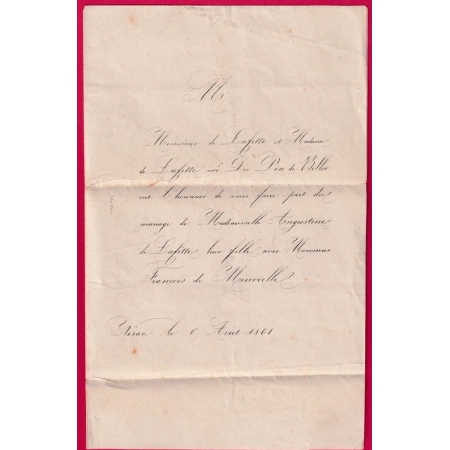 M
Monsieur de Lafitte et Madame
de Lafitte née Du Pin de
ont l'honneur de vous faire part du
mariage de Mademoiselle Augustine
de Lafitte leur fille, avec Monsieur
François de
Nérac le 6 Août 1861